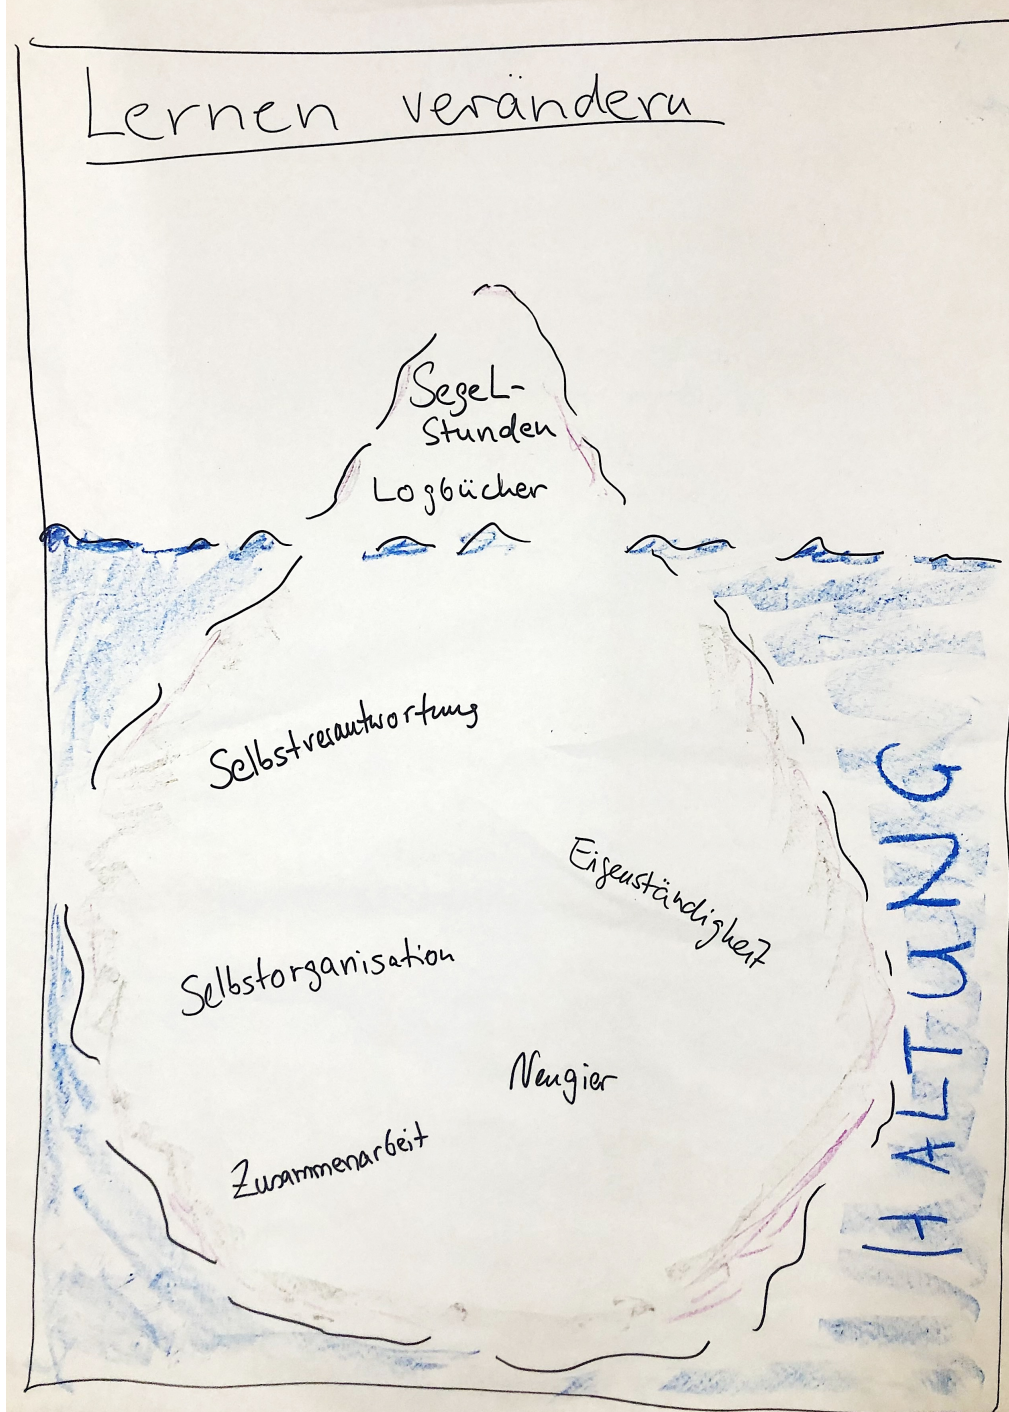 Lernen verändern
Segel-
Stunden
Logbücher
Selbstverantwortung
Eigenständigkeit
Selbstorganisation
Neugier
Zusammenarbeit
HALTUNG